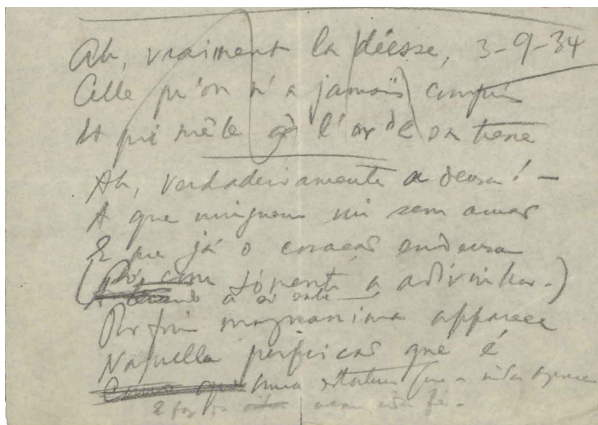 Ah, vraiment la déesse, 3-9-34
Celle qu'on n'a jamais compris
Et qui mêle à l'or de sa
Ah, verdadeiramente a deusa! —
A que ninguem viu sem amar
E que já o coração endeusa
(Só com sómente a adivinhar.)
Por fim magnanima apparece
Naquella perfeição que é
Uma estatua que a vida
E faz da